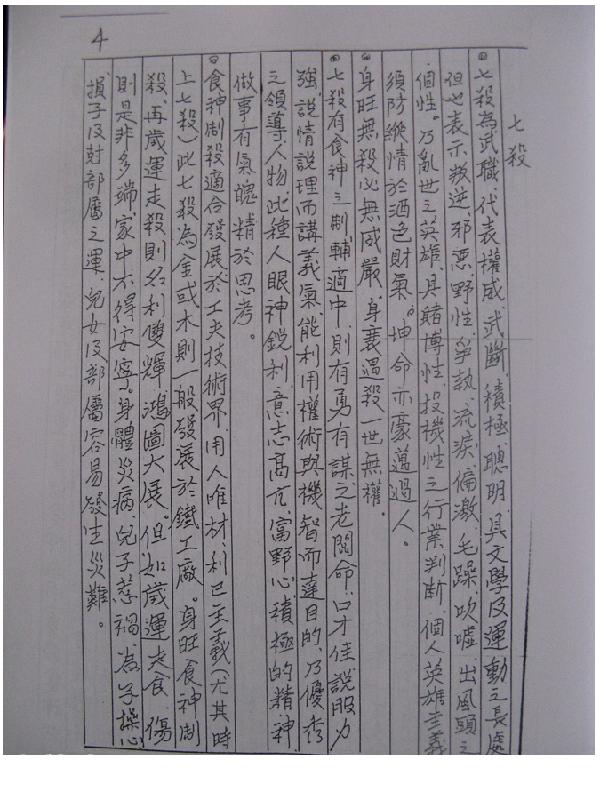 4
七殺
七殺為武職、代表權威、武斷、積極、聰明、具文學及運動之長處
但也表示叛逆、邪惡、野性、爭執、流淚、偏激、毛躁、吹噓、出風頭之
個性。乃亂世之英雄、具賭博性、投機性之行業判斷、個人英雄主義
須防縱情於酒色財氣。坤命亦豪邁過人。
身旺無殺必無威嚴、身衰過殺一世無權。
七殺有食神之制、輔適中、則有勇有謀之老闆命、口才佳、說服力
強、說情說理而講義氣、能利用權術與機智而達目的、乃優秀
之領導人物、此種人眼神銳利、意志高亢、富野心、積極的精神
做事有氣魄、精於思考。
食神制殺適合發展於工夫技術界、用人唯材、利己主義(尤其時
上七殺)此七殺為金或木則一般發展於鐵工廠。身旺食神制
殺、再歲運走殺則名利雙輝、鴻圖大展。但如歲運走食、傷
則是非多端、家中不得安寧。身體災病、兒子惹禍、為子操心
損子及財部屬之運、兒女及部屬容易發生災難。